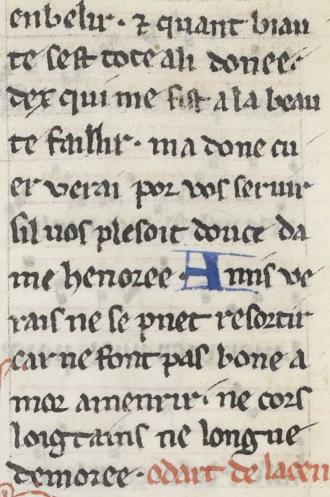 enbelir. ⁊ quant biau
te sest tote a li donee.
dex qui me fist a la beau
te faillir. ma done cu
er verai por vos seruir
sil uos plesoit douce da
me henoree. Amis ve
rais ne se puet resortir
car ne font pas bone a
mor amenrir. ne cors
loigtains ne longue
demoree. odart de laceni